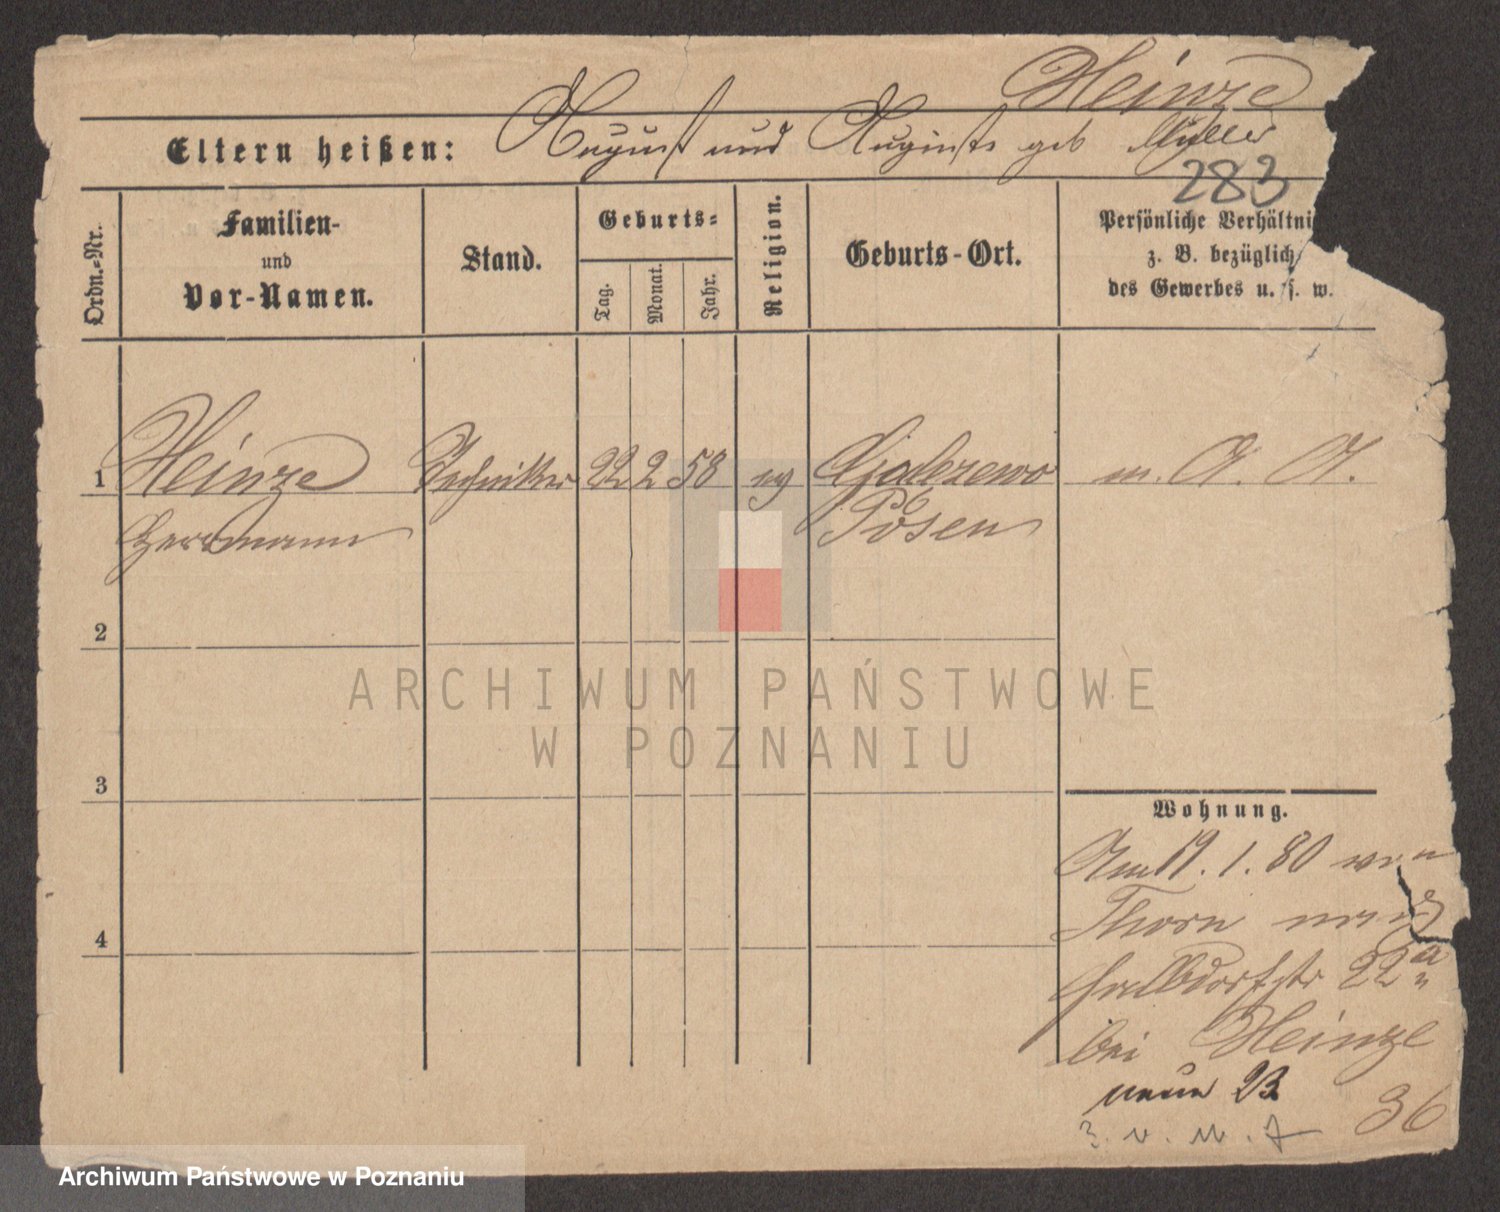 Heinze
Eltern heißen: August und Auguste geb Müller
283
Ordn.-Nr.
Familien-
und
Vor-Namen.
Stand.
Geburts-
Tag.
Monat.
Jahr.
Religion.
Geburts-Ort.
Persönliche Verhältni
z. B. bezüglich
des Gewerbes u. s. w.
1 Heinze Techniker 22 2 58 eg m. A. A.
Herrmann Posen
2
3
4
ARCHIWUM PAŃSTWOWE
W POZNANIU
Wohnung.
Am 19. 1. 80 von
Thorn nach
Halbdorfstr 22a
bei Heinze
neue 23
36
Archiwum Państwowe w Poznaniu